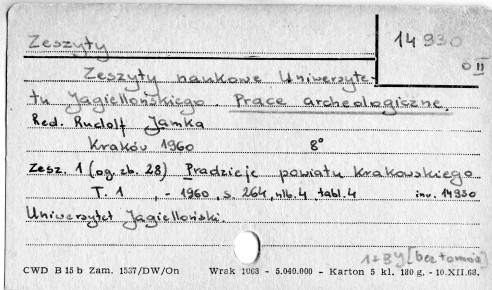 Zeszyty
14 930
0 II
Zeszyty naukowe Uniwersyte-
tu Jagiellońskiego. Prace archeologiczne.
Red. Rudolf Jamka
Kraków 1960 8°
Zesz. 1 (og. zb. 28) Pradzieje powiatu krakowskiego
T. 1 , - 1960, s. 264, nlb. 4, tabl. 4 inw. 14930
Uniwersytet Jagielloński.
[bez tomów]
CWD B 15 b Zam. 1537/DW/On Wrak 1063 - 5.040.000 - Karton 5 kl. 180 g. - 10.XII.63.